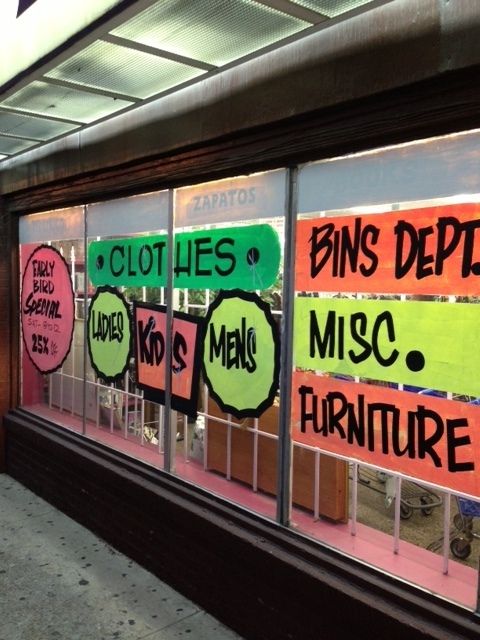 ZAPATOS
EARLY
BIRD
SPECIAL
SAT - 8 TO 12
25%
CLOTHES
LADIES
KIDS
MENS
BINS DEPT.
MISC.
FURNITURE